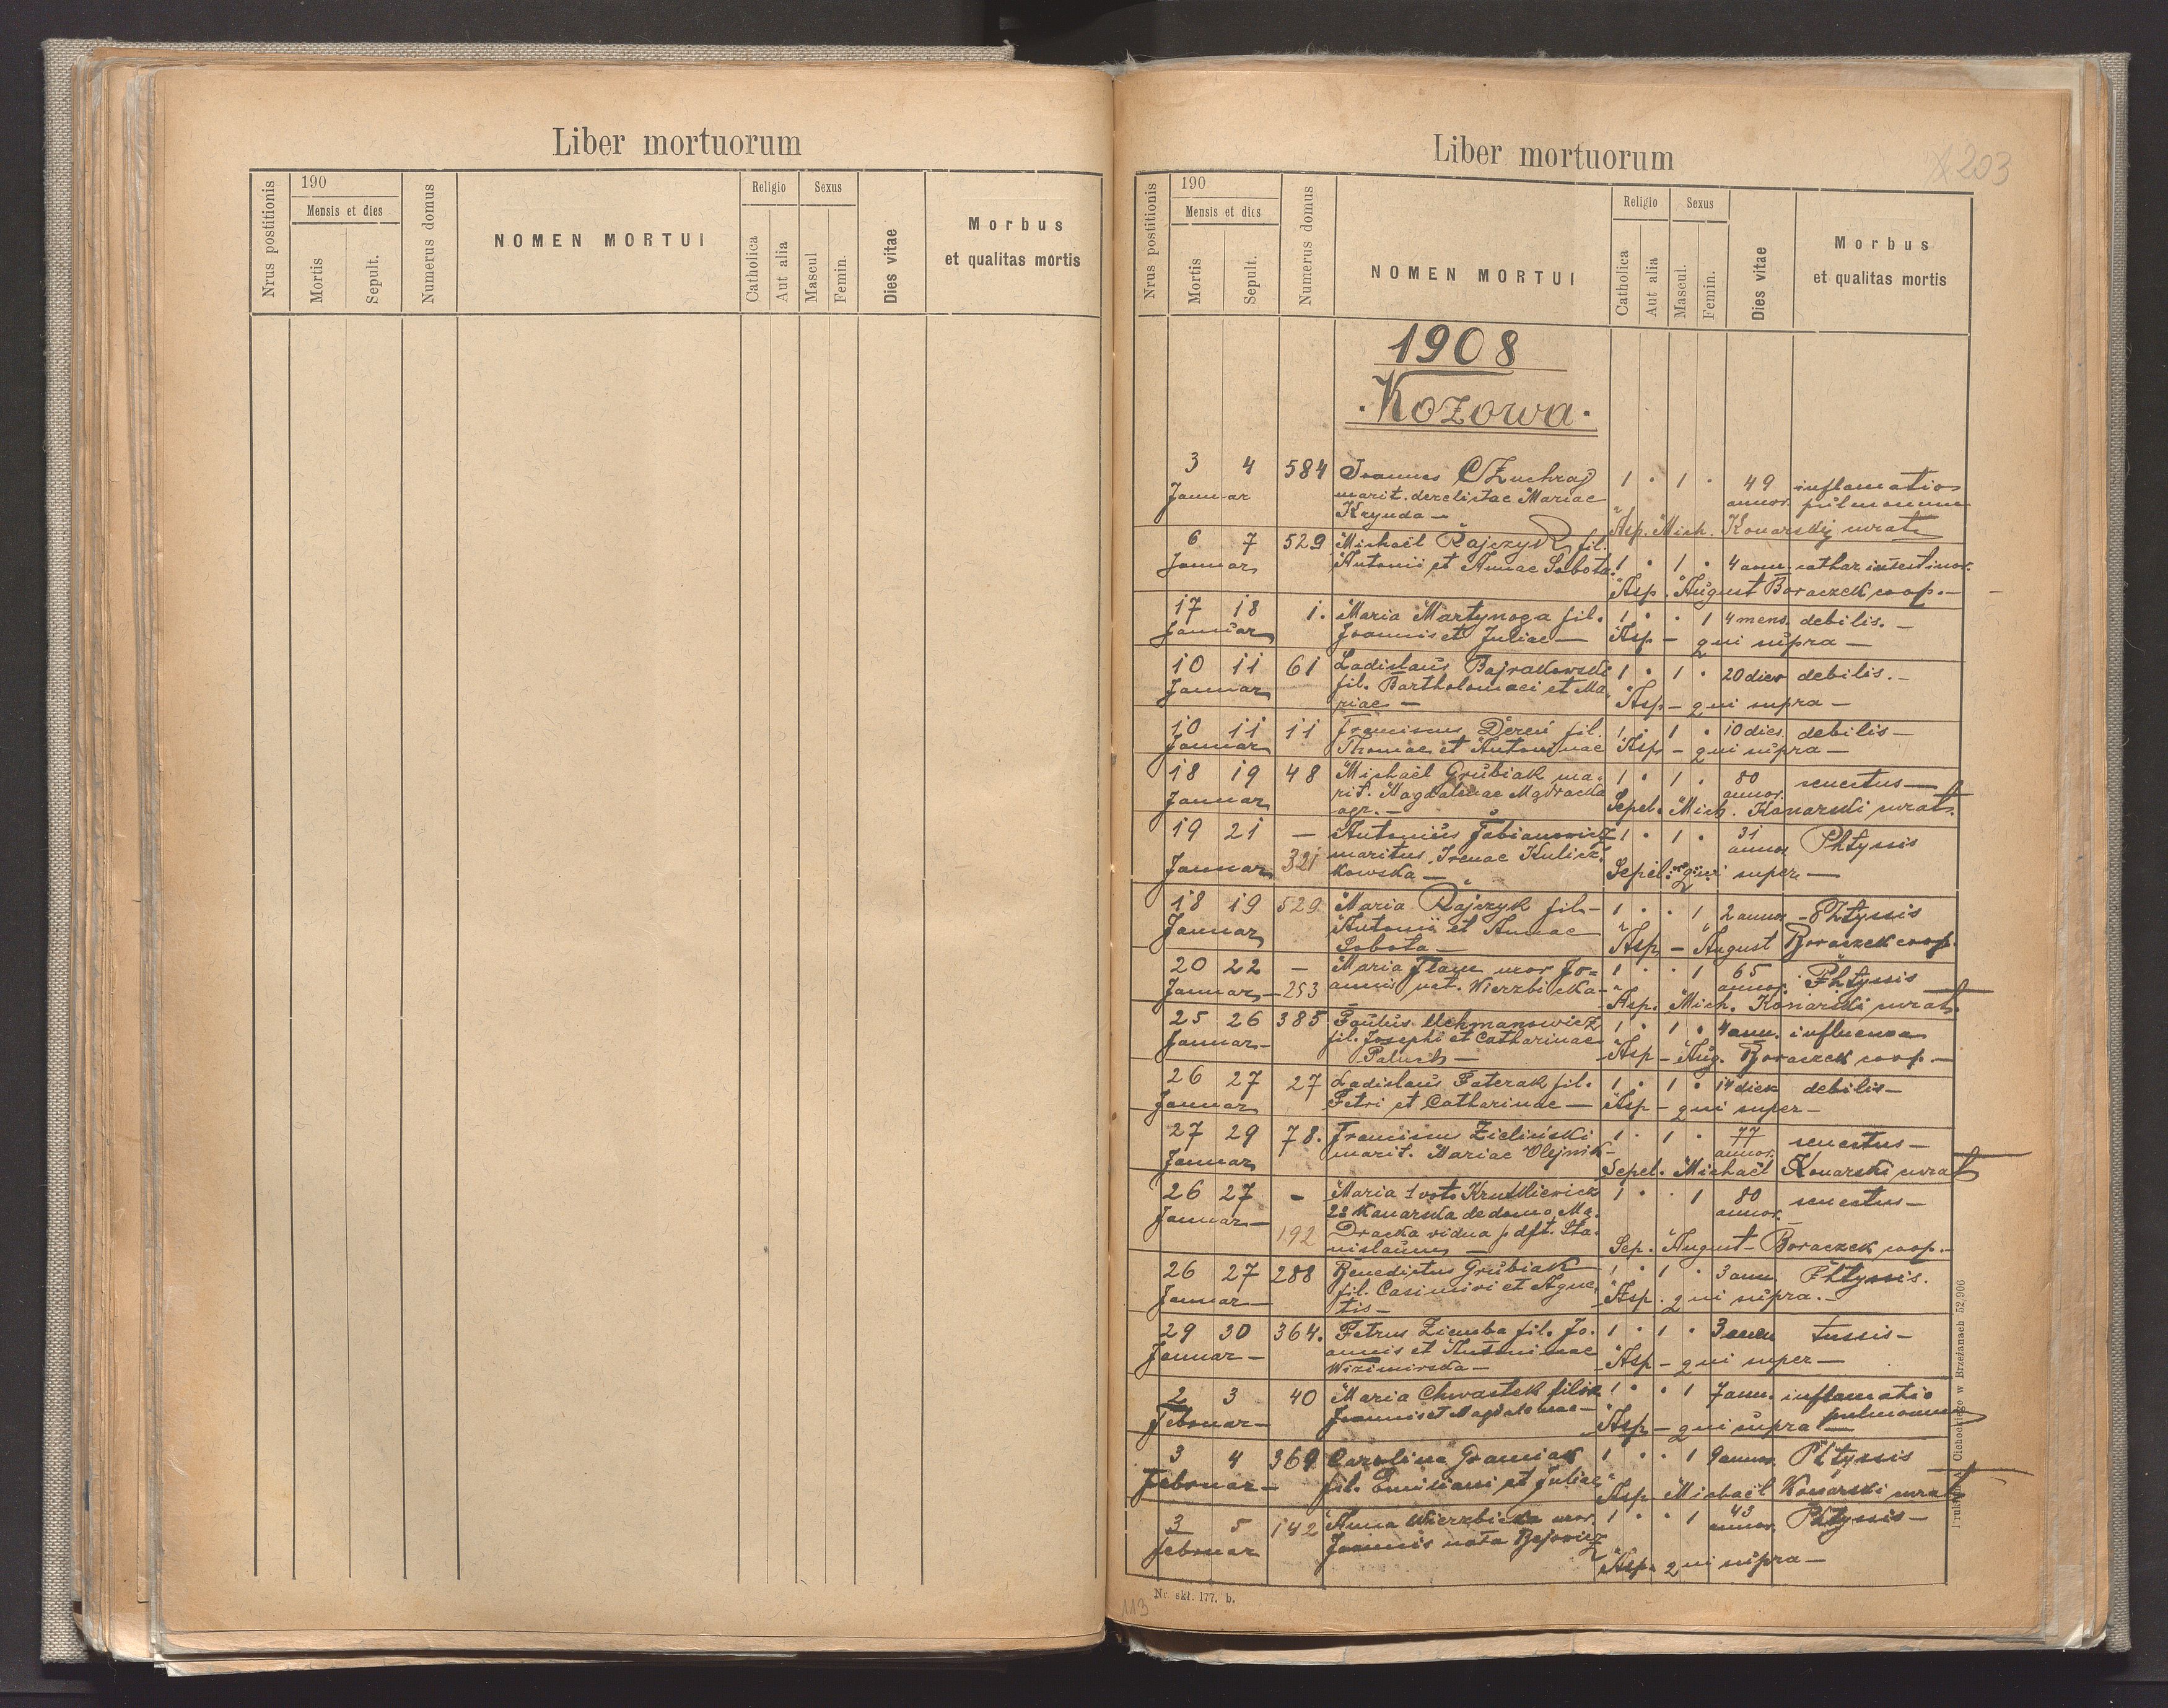 Liber mortuorum
Nrus postitionis
190
Mensis et dies
Mortis
Sepult.
Numerus domus
NOMEN MORTUI
Religio
Catholica
Aut alia
Sexus
Mascul
Femin.
Dies vitae
Morbus
et qualitas mortis
Liber mortuorum
203
Nrus postitionis
190
Mensis et dies
Mortis
Sepult.
Numerus domus
NOMEN MORTUI
Religio
Catholica
Aut alia
Sexus
Mascul.
Femin.
Dies vitae
Morbus
et qualitas mortis
1908
Kozowa.
3 4 584 Joannes 1 · 1 · 49 inflamatio
Januar marit. derelictae Mariae annor. pulmonum
Krynda —
Asp. Mich. Konarskij curat
6 7 529 Michaël Rajczyk fil.
Januar Antonii et Annae Sobota 1 · 1 · 4 ann. cathar intestinor.
Asp. August Boraczek coop. —
17 18 1. Maria Martynoga fil. 1 · · 1 4 mens. debilis. —
Januar Joannis et Juliae — Asp — qui supra —
10 11 61 Ladislaus Bajrakowski 1 · 1 · 20 dies debilis. —
Januar fil. Bartholomaei et Ma
riae — Asp — qui supra —
10 11 11 Dereń fil. 1 · 1 · 10 dies debilis —
Januar Thomae et Antoninae Asp — qui supra —
18 19 48 Michaël Grubiak ma. 1 · 1 · 80 senectus —
Januar rit. Magdalenae Mądracka annor.
agr. — Sepel. Mich. Konarski curat.
19 21 — Antonius Fabianowicz 1 · 1 · 31 Phtysis
Januar 321 maritus Irenae Kulicz annor
kowska — Sepel. qui super. —
18 19 529 Maria Rajczyk fil — 1 · · 1 2 annor — Phtysis
Januar Antonii et Annae
Sobota — Asp — August Boraczek coop.
20 22 — Maria uxor Jo= 1 · · 1 65 Phtysis
Januar — 253 annis nat. Wierzbicka — annor.
Asp. Mich. Konarski curat.
25 26 385 Paulus Uchmanowicz 1 · 1 · 4 ann. influenza
Januar — fil. Josephi et Catharinae
Paluch — Asp — Aug. Boraczek coop. —
26 27 27 Ladislaus Paterak fil. 1 · 1 · 14 dies debilis —
Januar Petri et Catharinae — Asp — qui super —
27 29 78. Zieliński 1 · 1 · 77 senectus —
Januar marit. Mariae Olejnik — annor.
Sepel. Michaël Konarski curat
26 27 — Maria 1 voto Krutkiewicz 1 · · 1 80 senectus —
Januar — 2º Konarska de domo Mą. annor.
192 Dracka vidua p. dft. Sta.
nislaum — Sep. August — Boraczek coop. —
26 27 288 Benedictus Grubiak 1 · 1 · 3 ann. Phtysis.
Januar — fil. Casimiri et Agne
tis — Asp. qui supra. —
29 30 364. Petrus Ziemba fil. Jo. 1 · 1 · 3 ann tussis —
Januar — annis et Antoninae
Asp — qui super —
2 3 40 Maria Chwastek filia 1 · · 1 7 ann. inflamatio
Februar — Joannis et Magdalenae — pulmonum
Asp — qui supra —
3 4 369 Carolina Graniak 1 · · 1 9 annor. Phtysis
Februar — fil. Emiliani et Juliae
Asp Michaël Konarski curat
3 5 142 Anna Wierzbicka uxor 1 · · 1 43 Phtysis —
februar Joannis nata annor.
Asp. qui supra —
Nr. skł. 177. b.
113
Ciebockiego w Brzeżanach 52,906